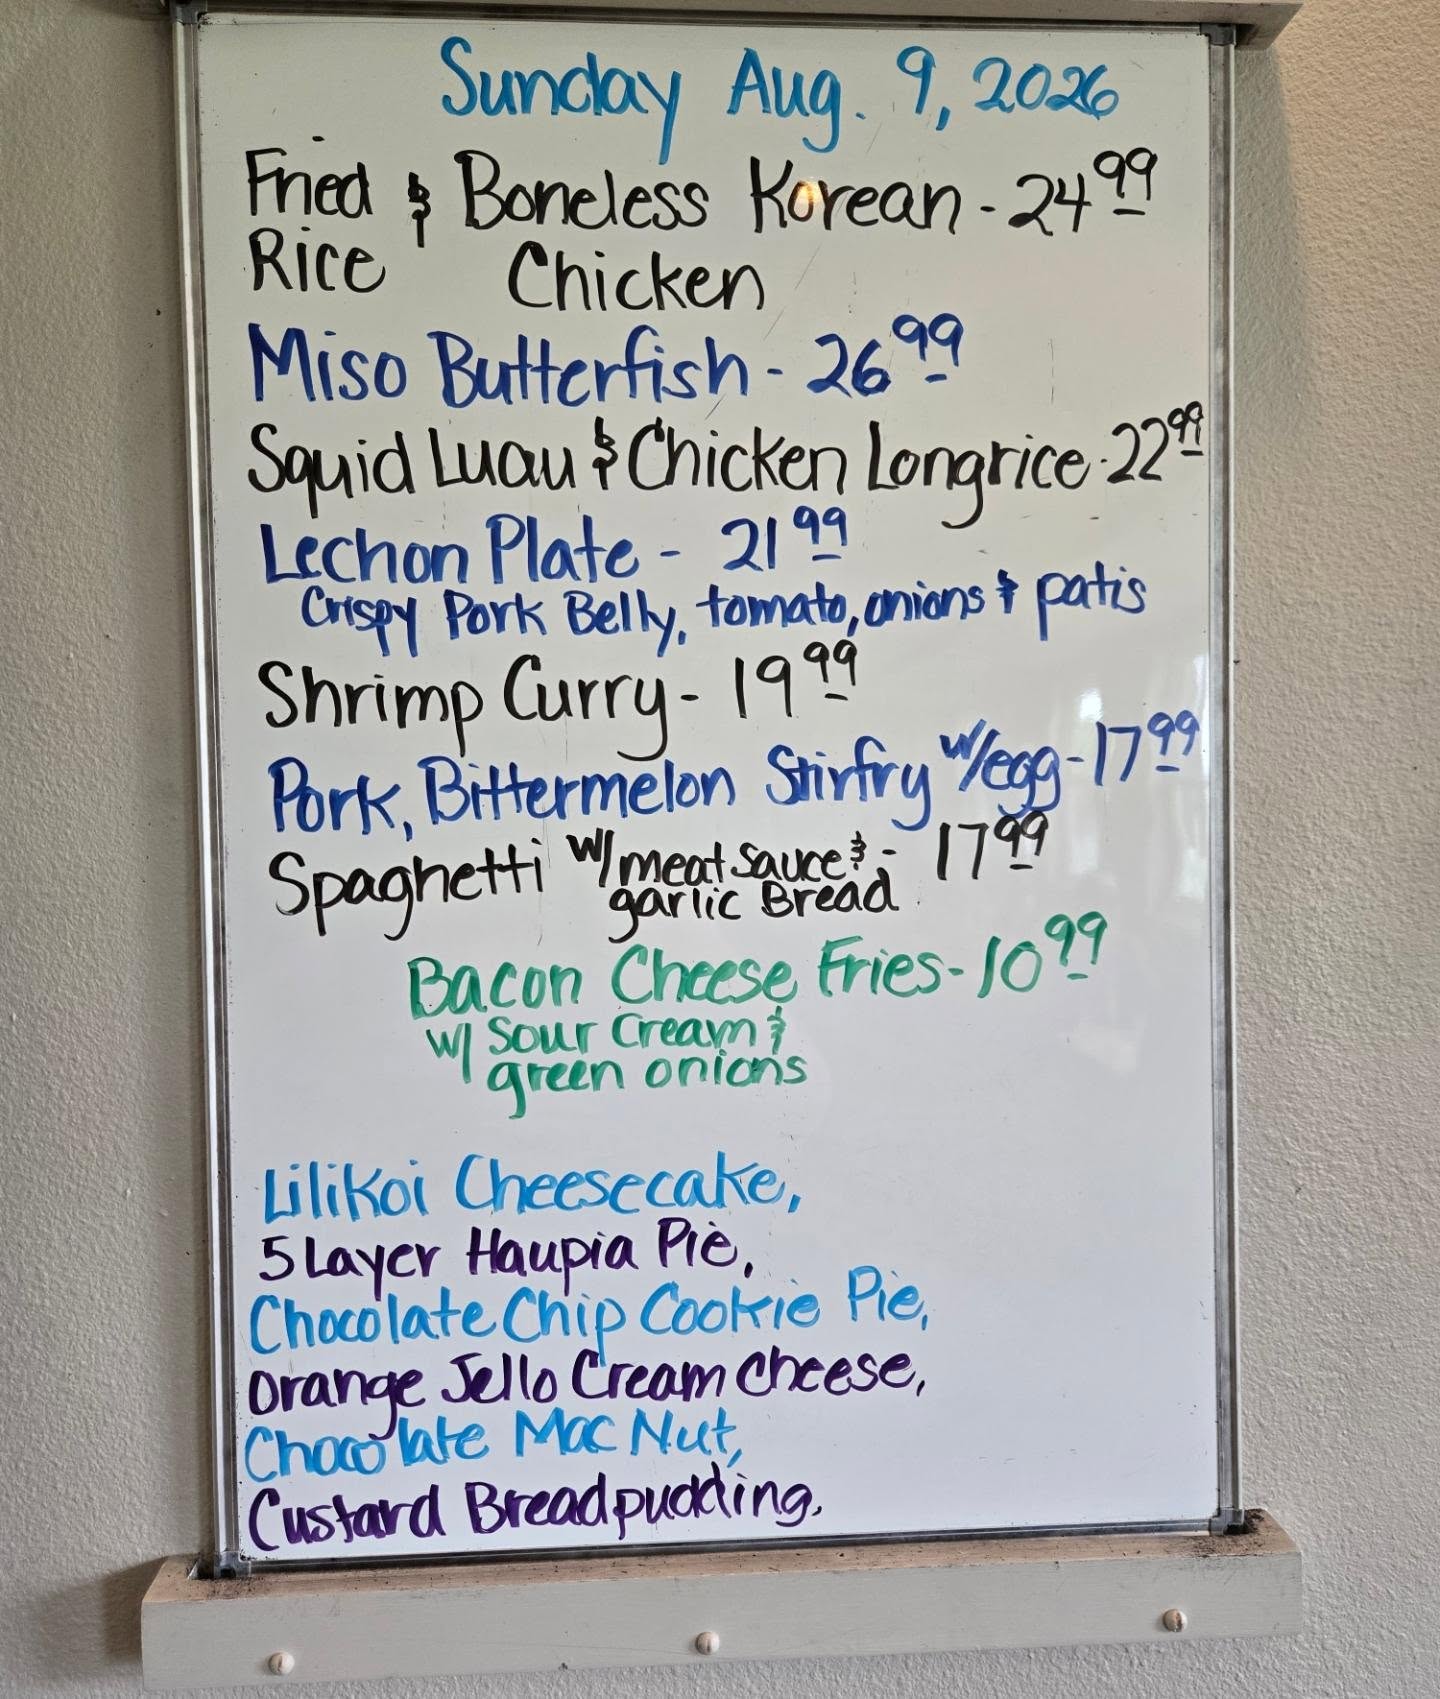 Sunday Aug. 9, 2026
Fried & Boneless Korean - 24.99
Rice Chicken
Miso Butterfish - 26.99
Squid Luau & Chicken Longrice - 22.99
Lechon Plate - 21.99
Crispy Pork Belly, tomato, onions & patis
Shrimp Curry - 19.99
Pork, Bittermelon Stirfry w/egg - 17.99
Spaghetti w/meat sauce & - 17.99
garlic Bread
Bacon Cheese Fries - 10.99
w/ Sour Cream &
green onions
Lilikoi Cheesecake,
5 Layer Haupia Pie,
Chocolate Chip Cookie Pie,
Orange Jello Cream Cheese,
Chocolate Mac Nut,
Custard Breadpudding,